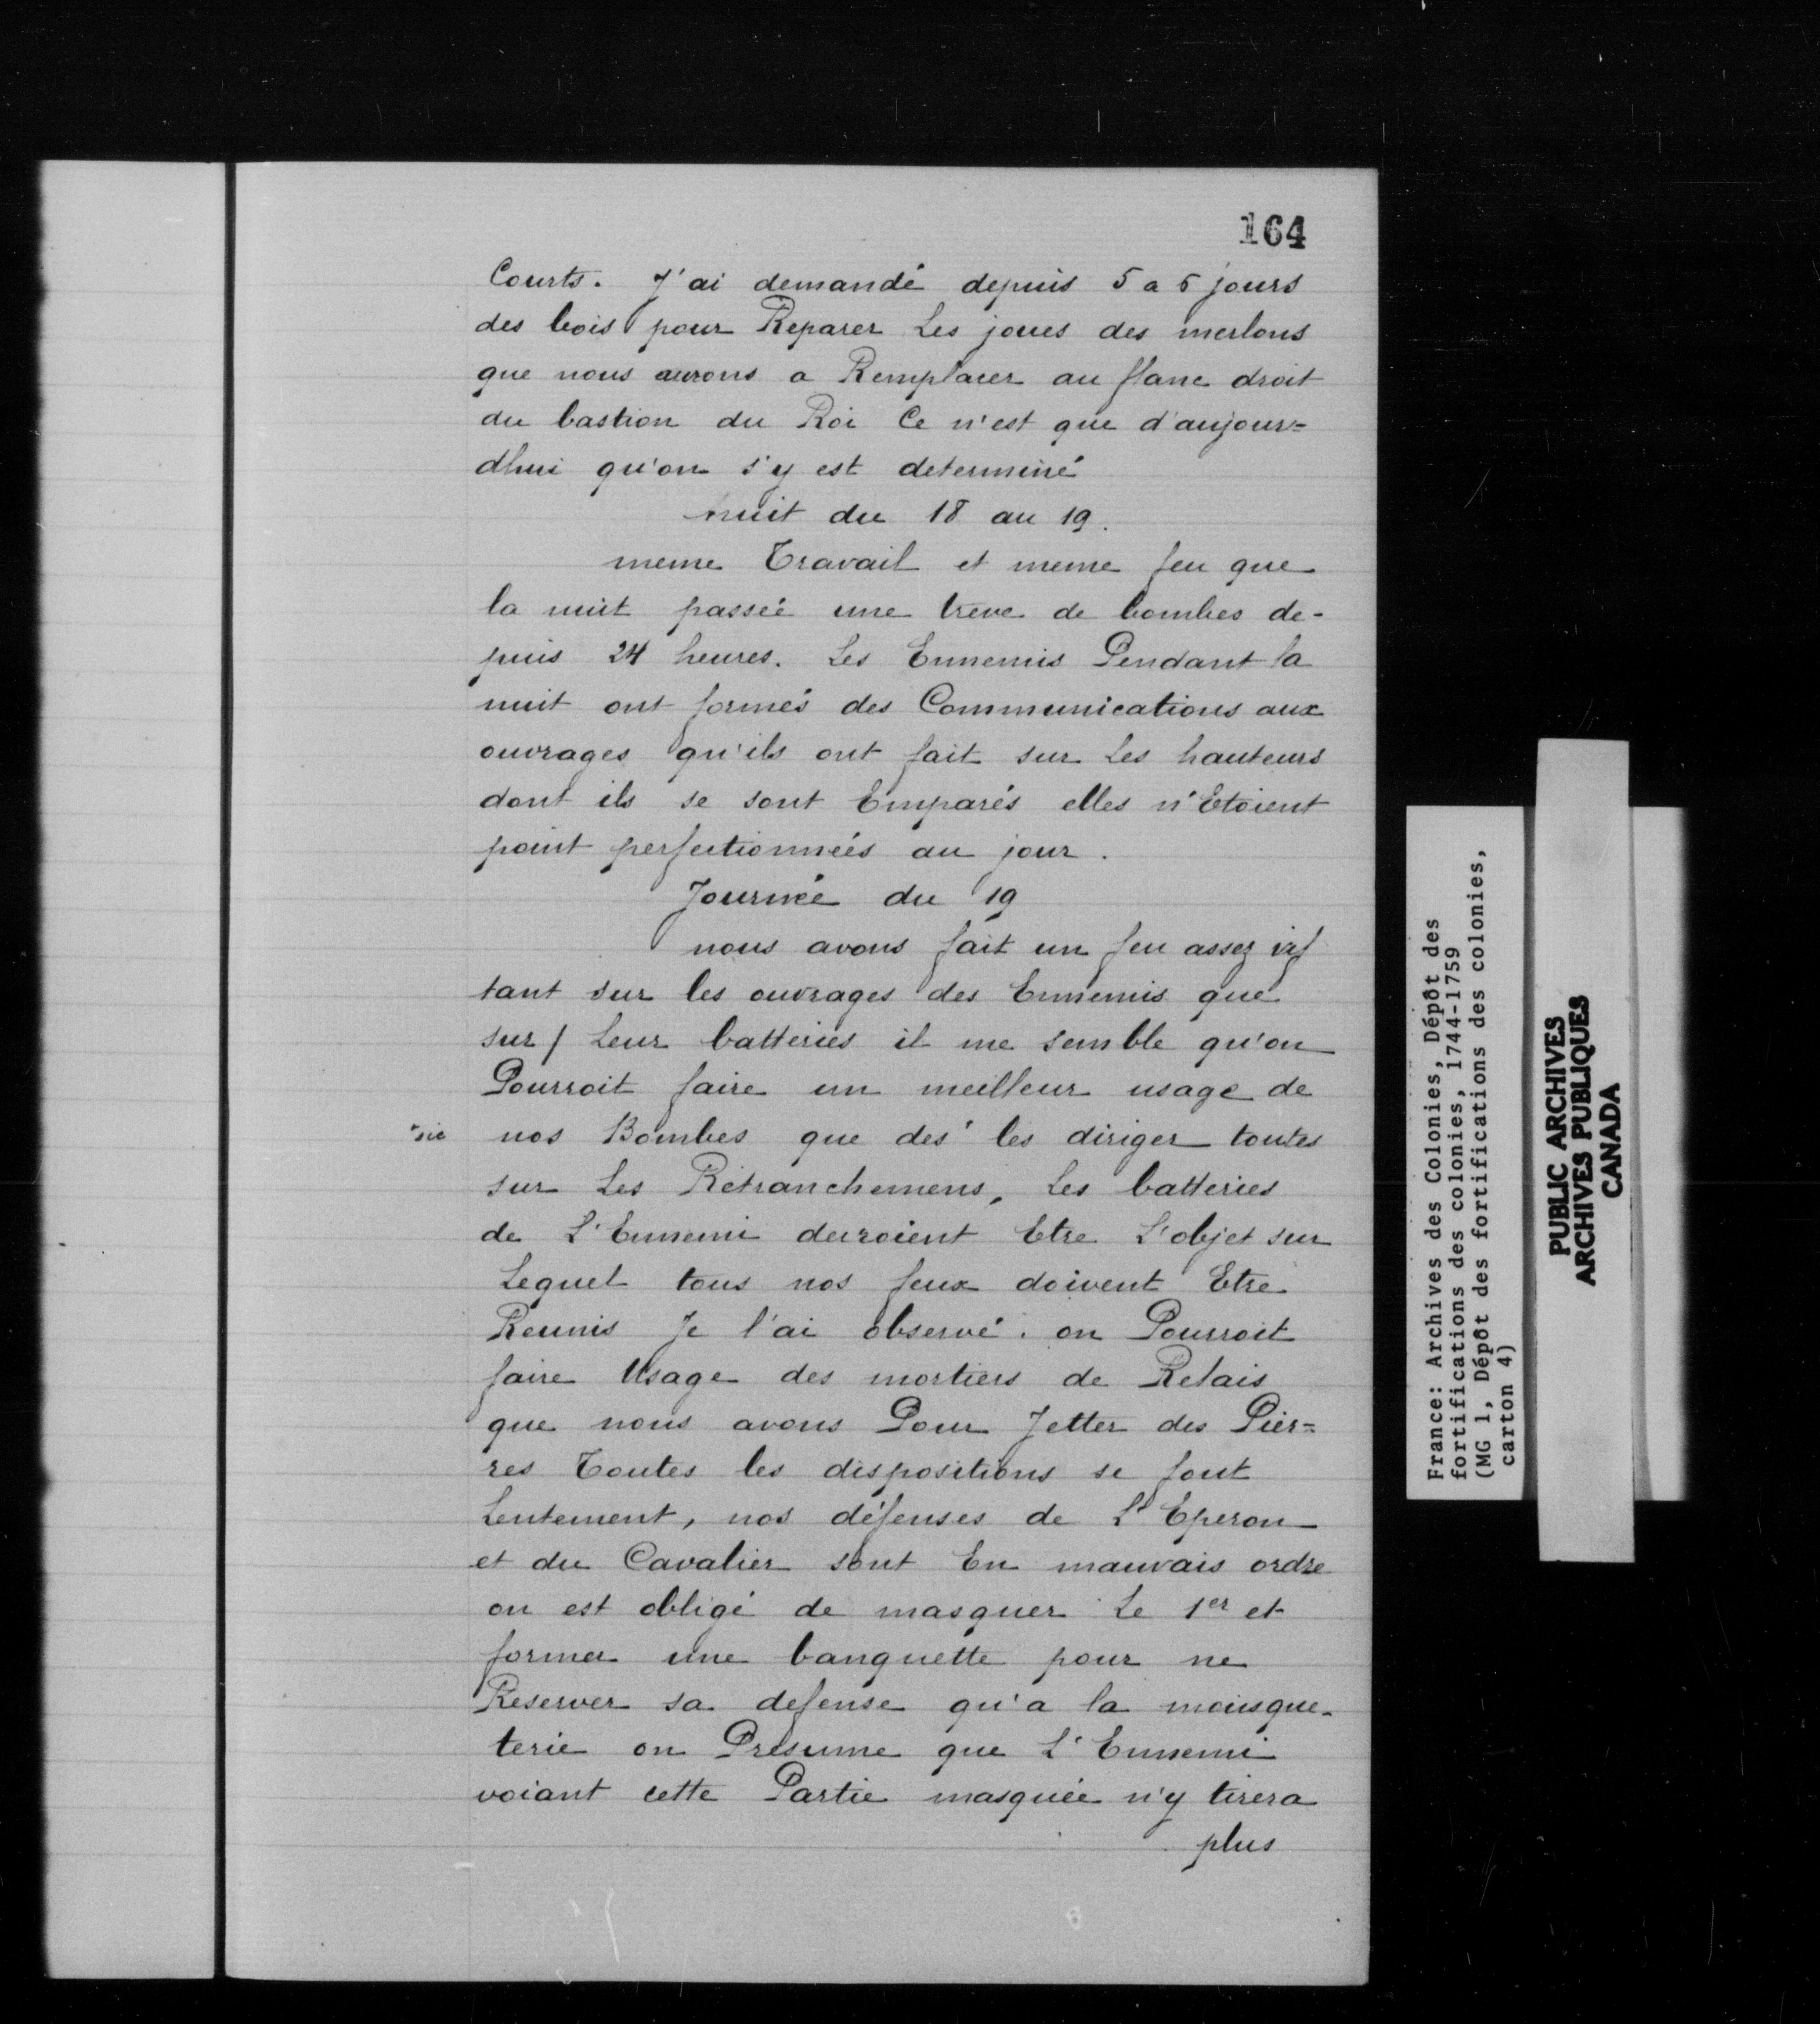 164
Courts. J'ai demandé depuis 5 a 6 jours
des bois pour Reparer Les joues des merlons
que nous aurons a Remplacer au flanc droit
du bastion du Roi Ce n'est que d'aujour=
dhui qu'on s'y est determiné
nuit du 18 au 19.
meme Travail et meme feu que
la nuit passée une treve de bombes de-
puis 24 heures. Les Ennemis Pendant la
nuit ont formés des Communications aux
ouvrages qu'ils ont fait sur Les hauteurs
dont ils se sont Emparés elles n'Etoient
point perfectionnées au jour.
Journée du 19
nous avons fait un feu assez vif
tant sur les ouvrages des Ennemis que
sur / Leur batteries il me semble qu'on
Pourroit faire un meilleur usage de
*sic nos Bombes que des* les diriger toutes
sur Les Retranchemens, Les batteries
de L'Ennemi devroient Etre L'objet sur
Lequel tous nos feux doivent Etre
Reunis Je l'ai observé. on Pourroit
faire Usage des mortiers de Relais
que nous avons Pour Jetter des Pier=
res Toutes les dispositions se font
Lentement, nos défenses de L'Eperon
et du Cavalier sont En mauvais ordre
on est obligé de masquer Le 1er et
former une banquette pour ne
Reserver sa defense qu'a la mousque-
terie on Presume que L'Ennemi
voiant cette Partie masquée n'y tirera
plus
France: Archives des Colonies, Dépôt des
fortifications des colonies, 1744-1759
(MG 1, Dépôt des fortifications des colonies,
carton 4)
PUBLIC ARCHIVES
ARCHIVES PUBLIQUES
CANADA